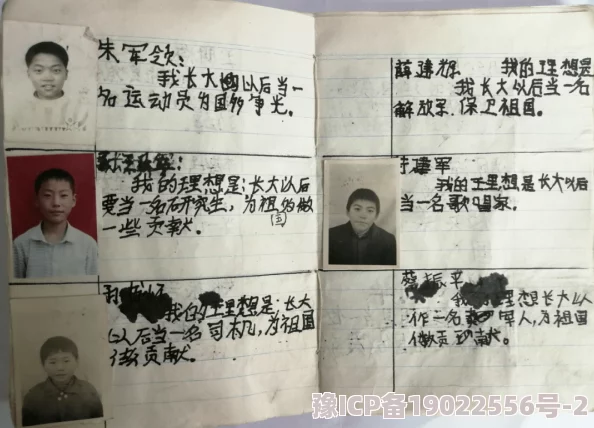 朱军领:
我长大以后当一
名运动员为国多争光。
我的理想是:长大以后
要当一名研究生,为祖国做
一些贡献。
我的理想是:长大
以后当一名司机,为祖国
做贡献。
薛建 我的理想是
我长大以后当一名
解放军.保卫祖国。
建军
我的理想是长大以后
当一名歌唱家。
振
我的理想长大以
作一名军人,为祖国
做贡献。
豫ICP备19022556号-2